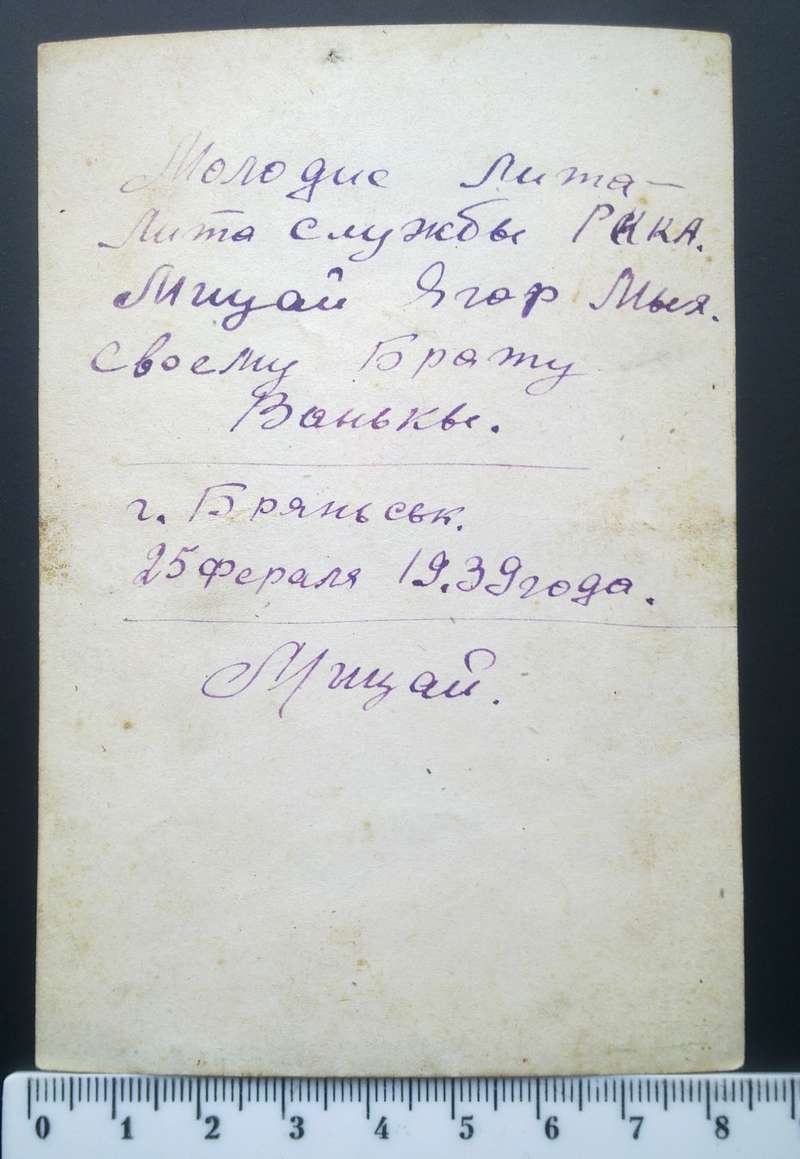 Молодис лита-
лита службы РККА.
Мицай Ягор Мых.
своему Брату
Ванькы.
г. Бряньськ.
25 Фераля 19.39 года.
Мицай.
0 1 2 3 4 5 6 7 8